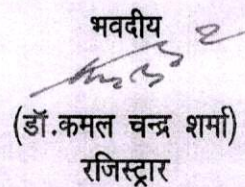 भवदीय
(डॉ.कमल चन्द्र शर्मा)
रजिस्ट्रार